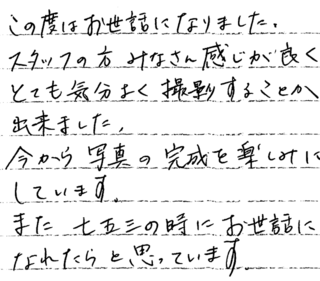 この度はお世話になりました。
スタッフの方 みなさん感じが良く
とても気分よく撮影することが
出来ました。
今から写真の完成を楽しみに
しています。
また 七五三の時にお世話に
なれたらと思っています。